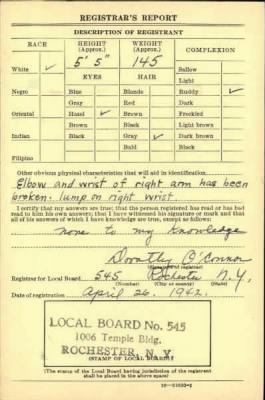 REGISTRAR'S REPORT
DESCRIPTION OF REGISTRANT
RACE HEIGHT (Approx.) WEIGHT (Approx.) COMPLEXION
White ✓ 5' 5" 145 Sallow
EYES HAIR Light
Negro Blue Blonde Ruddy ✓
Gray Red Dark
Oriental Hazel ✓ Brown Freckled
Brown Black Light brown
Indian Black Gray ✓ Dark brown
Bald Black
Filipino
Other obvious physical characteristics that will aid in identification
Elbow and wrist of right arm has been
broken. lump on right wrist
I certify that my answers are true; that the person registered has read or has had
read to him his own answers; that I have witnessed his signature or mark and that
all of his answers of which I have knowledge are true, except as follows:
none to my knowledge
Dorothy O'Connor
(Signature of registrar)
Registrar for Local Board 545 Rochester N.Y.
(Number) (City or county) (State)
Date of registration April 26, 1942.
LOCAL BOARD No. 545
1006 Temple Bldg.
ROCHESTER, N. Y.
(STAMP OF LOCAL BOARD)
(The stamp of the Local Board having jurisdiction of the registrant
shall be placed in the above space)